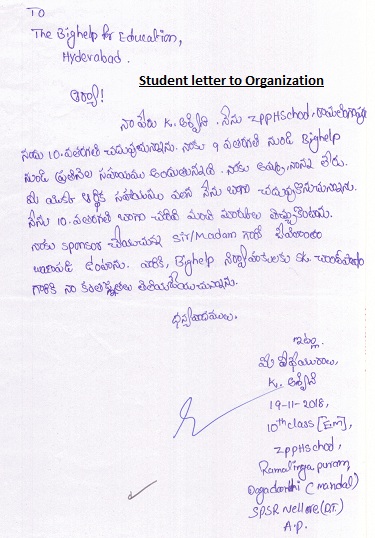 To
The Bighelp for Education,
Hyderabad.
Student letter to Organization
ఆర్యా!
నా పేరు K. . నేను ZPPHSchool,
నందు 10వ తరగతి చదువుచున్నాను. నాకు 9 వతరగతి నుండి Bighelp
నుండి ప్రతినెల సహాయము అందుతున్నది. నాకు అమ్మ, నాన్న లేరు.
మీ యొక్క ఆర్థిక సహాయము వలన నేను బాగా చదువుకొనుచున్నాను.
నేను 10వ తరగతి బాగా చదివి మంచి మార్కులు తెచ్చుకొంటాను.
నాకు sponsor చేయుచున్న Sir/Madam గారికి జీవితాంతం
ఋణపడి ఉంటాను. Bighelp నిర్వాహకులకు SK.
గారికి నా కృతజ్ఞతలు తెలియజేయుచున్నాను.
ధన్యవాదములు.
ఇట్లు
మీ విధేయురాలు,
K.
19-11-2018,
10th class [Em],
ZPPHSchool,
Ramalinga puram,
Dagadarthi (mandal)
SPSR Nellore (DT.)
A.P.